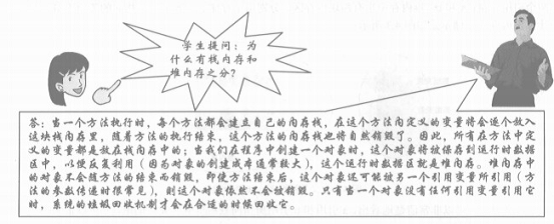 学生提问：为
什么有栈内存和
堆内存之分？
答：当一个方法执行时，每个方法都会建立自己的内存栈，在这个方法内定义的变量将会逐个放入
这块栈内存里，随着方法的执行结束，这个方法的内存栈也将自然销毁了。因此，所有在方法中定
义的变量都是放在栈内存中的；当我们在程序中创建一个对象时，这个对象将被保存到运行时数据
区中，以便反复利用（因为对象的创建成本通常较大），这个运行时数据区就是堆内存。堆内存中
的对象不会随方法的结束而销毁，即使方法结束后，这个对象还可能被另一个引用变量所引用（方
法的参数传递时很常见），则这个对象依然不会被销毁。只有当一个对象没有任何引用变量引用它
时，系统的垃圾回收机制才会在合适的时候回收它。